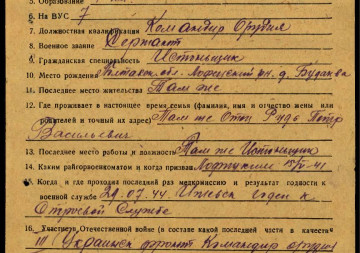 5. Образование
6. На ВУС 7
7. Должностная квалификация Командир Орудия
8. Военное звание Сержант
9. Гражданская специальность
10. Место рождения Полтавск. обл. р-н. д.
11. Последнее место жительства Там же
12. Где проживает в настоящее время семья (фамилия, имя и отчество жены или
родителей и точный их адрес) Там же Отец Рудь Петр
Васильевич
13. Последнее место работы и должность Там же
14. Каким райгорвоенкоматом и когда призван 41
15. Когда и где проходил последний раз медкомиссию и результат годности к
военной службе 29.07.44 годен к
Строевой Службе
16. Участвует в Отечественной войне (в составе какой последней части в качестве
III Украинск фронт Командир орудия